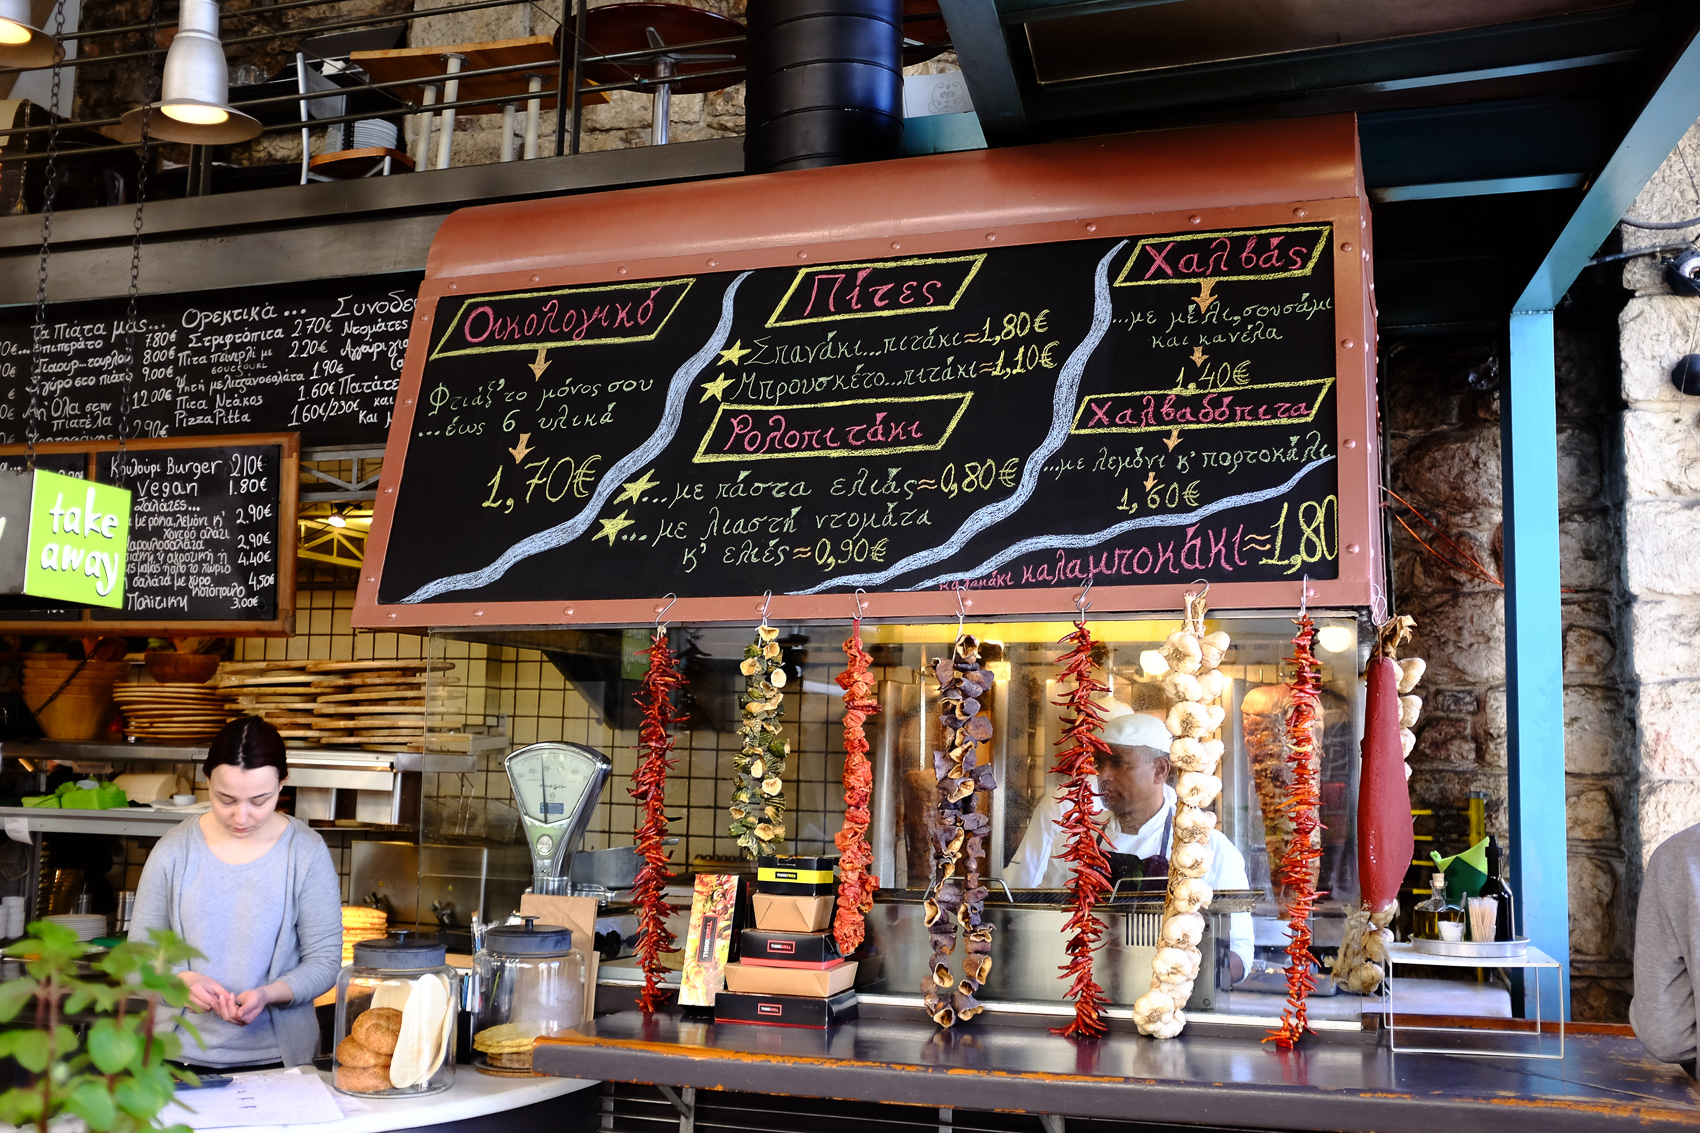 Τα πιάτα μας...
7.80€
8.00€
9.00€
12.00€
2.90€
Ορεκτικά ...
Στριφτόπιτα 2.70€
Πίτα πεϊνιρλί με
σουτζούκι 2.20€
Ψητή μελιτζανοσαλάτα 1.90€
Πίτα Ντάκος 1.60€
Pizza Pitta 1.60€/2.50€
Συνοδε
Ντομάτες
Πατάτε
και
Κουλούρι Burger 2.10€
Vegan 1.80€
Σαλάτες...
2.90€
2.90€
4.40€
σαλάτα με γύρο
κοτόπουλο 4,50€
Πολίτικη 3,00€
take
away
Οικολογικό
Φτιάξ'το μόνος σου
...έως 6 υλικά
1,70€
Πίτες
Σπανάκι...πιτάκι≈1,80€
Μπρουσκέτο...πιτάκι≈1,10€
Ρολοπιτάκι
...με πάστα ελιάς≈0,80€
...με λιαστή ντομάτα
κ' ελιές≈0,90€
Χαλβάς
...με μέλι,σουσάμι
και κανέλα
1,40€
Χαλβαδόπιτα
...με λεμόνι κ' πορτοκάλι
1,60€
καλαμάκι καλαμποκάκι≈1,80